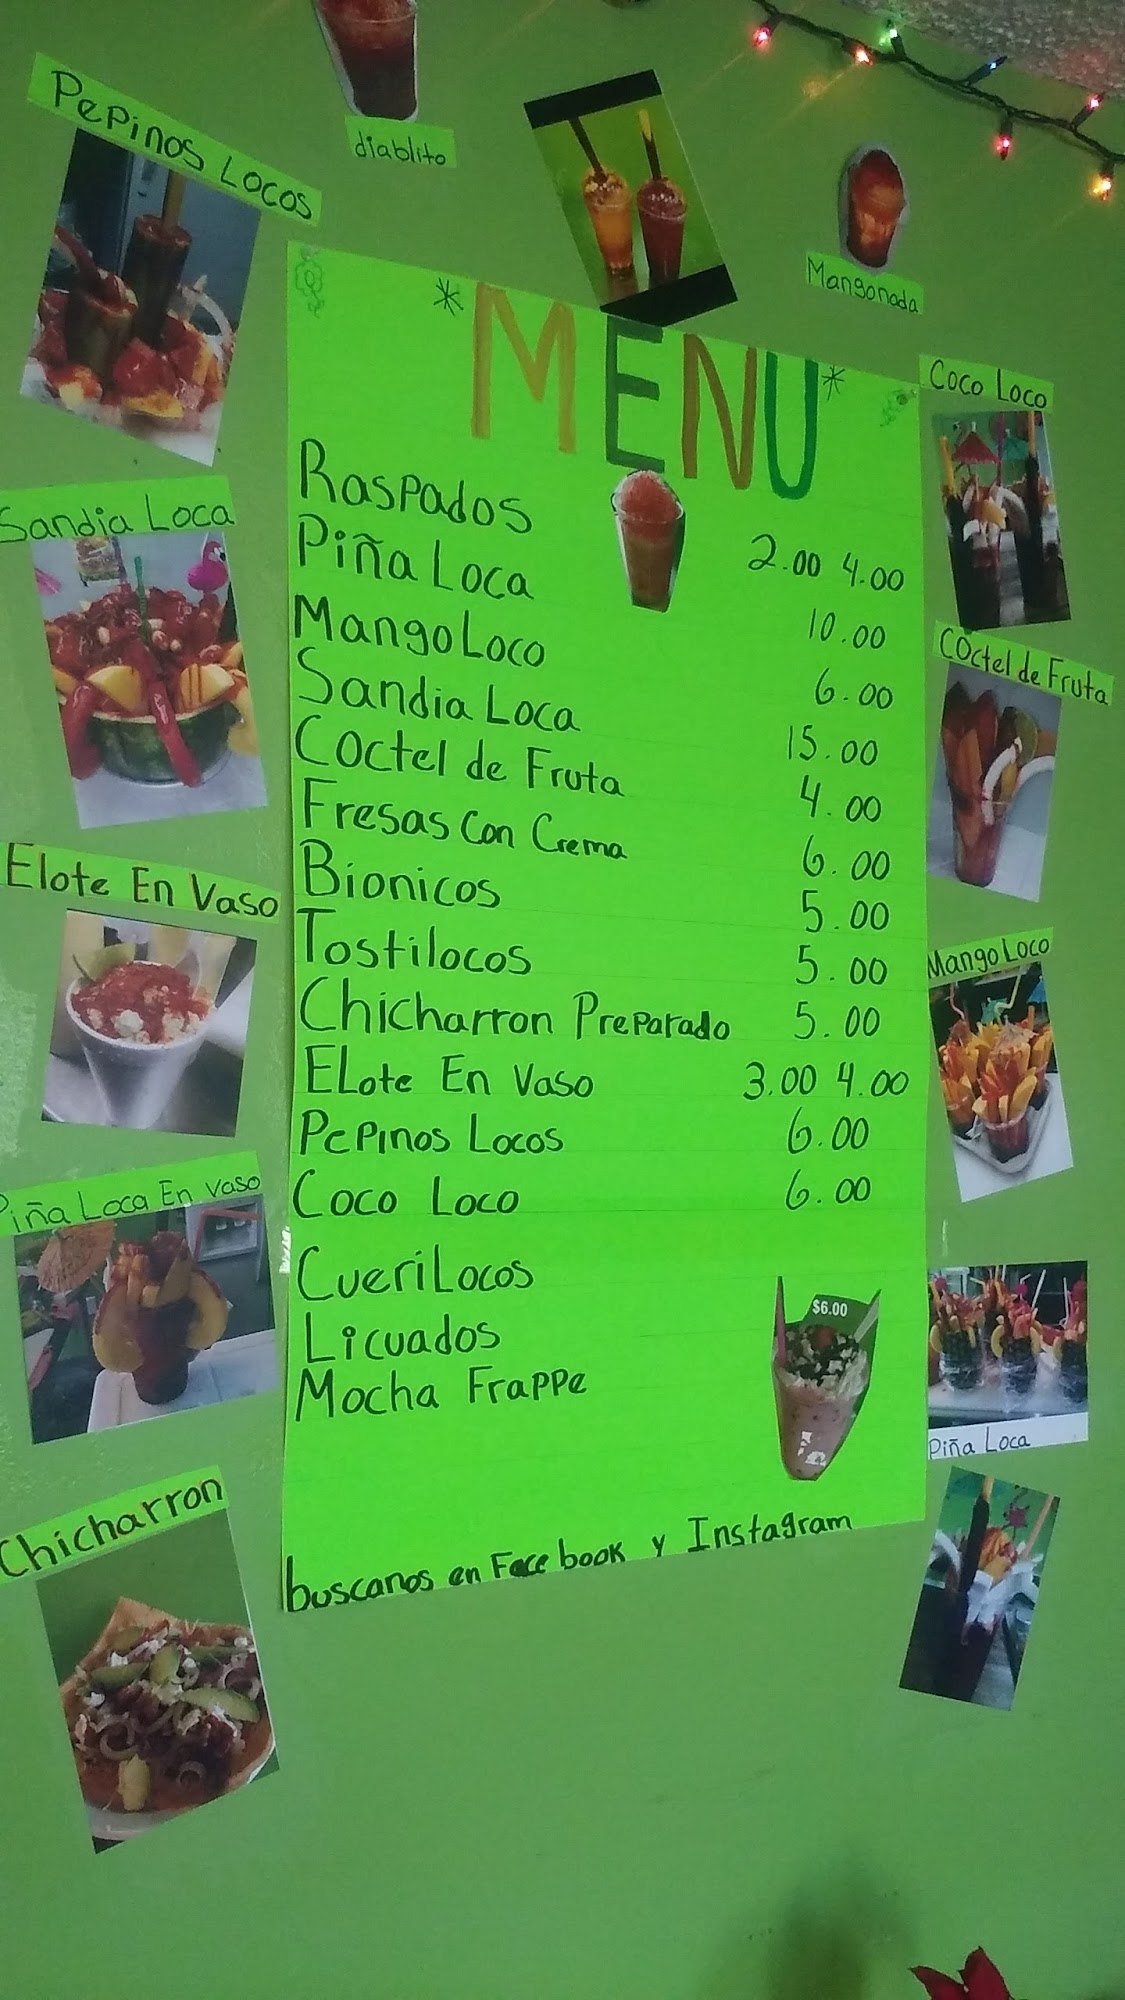 diablito
Pepinos Locos
Mangonada
* MENU *
Coco Loco
Sandia Loca
Coctel de Fruta
Elote En Vaso
Mango Loco
Piña Loca En vaso
Piña Loca
Chicharron
Raspados 2.00 4.00
Piña Loca 10.00
Mango Loco 6.00
Sandia Loca 15.00
Coctel de Fruta 4.00
Fresas Con Crema 6.00
Bionicos 5.00
Tostilocos 5.00
Chicharron Preparado 5.00
ELote En Vaso 3.00 4.00
Pepinos Locos 6.00
Coco Loco 6.00
CueriLocos
Licuados
Mocha Frappe
$6.00
buscanos en Face book y Instagram